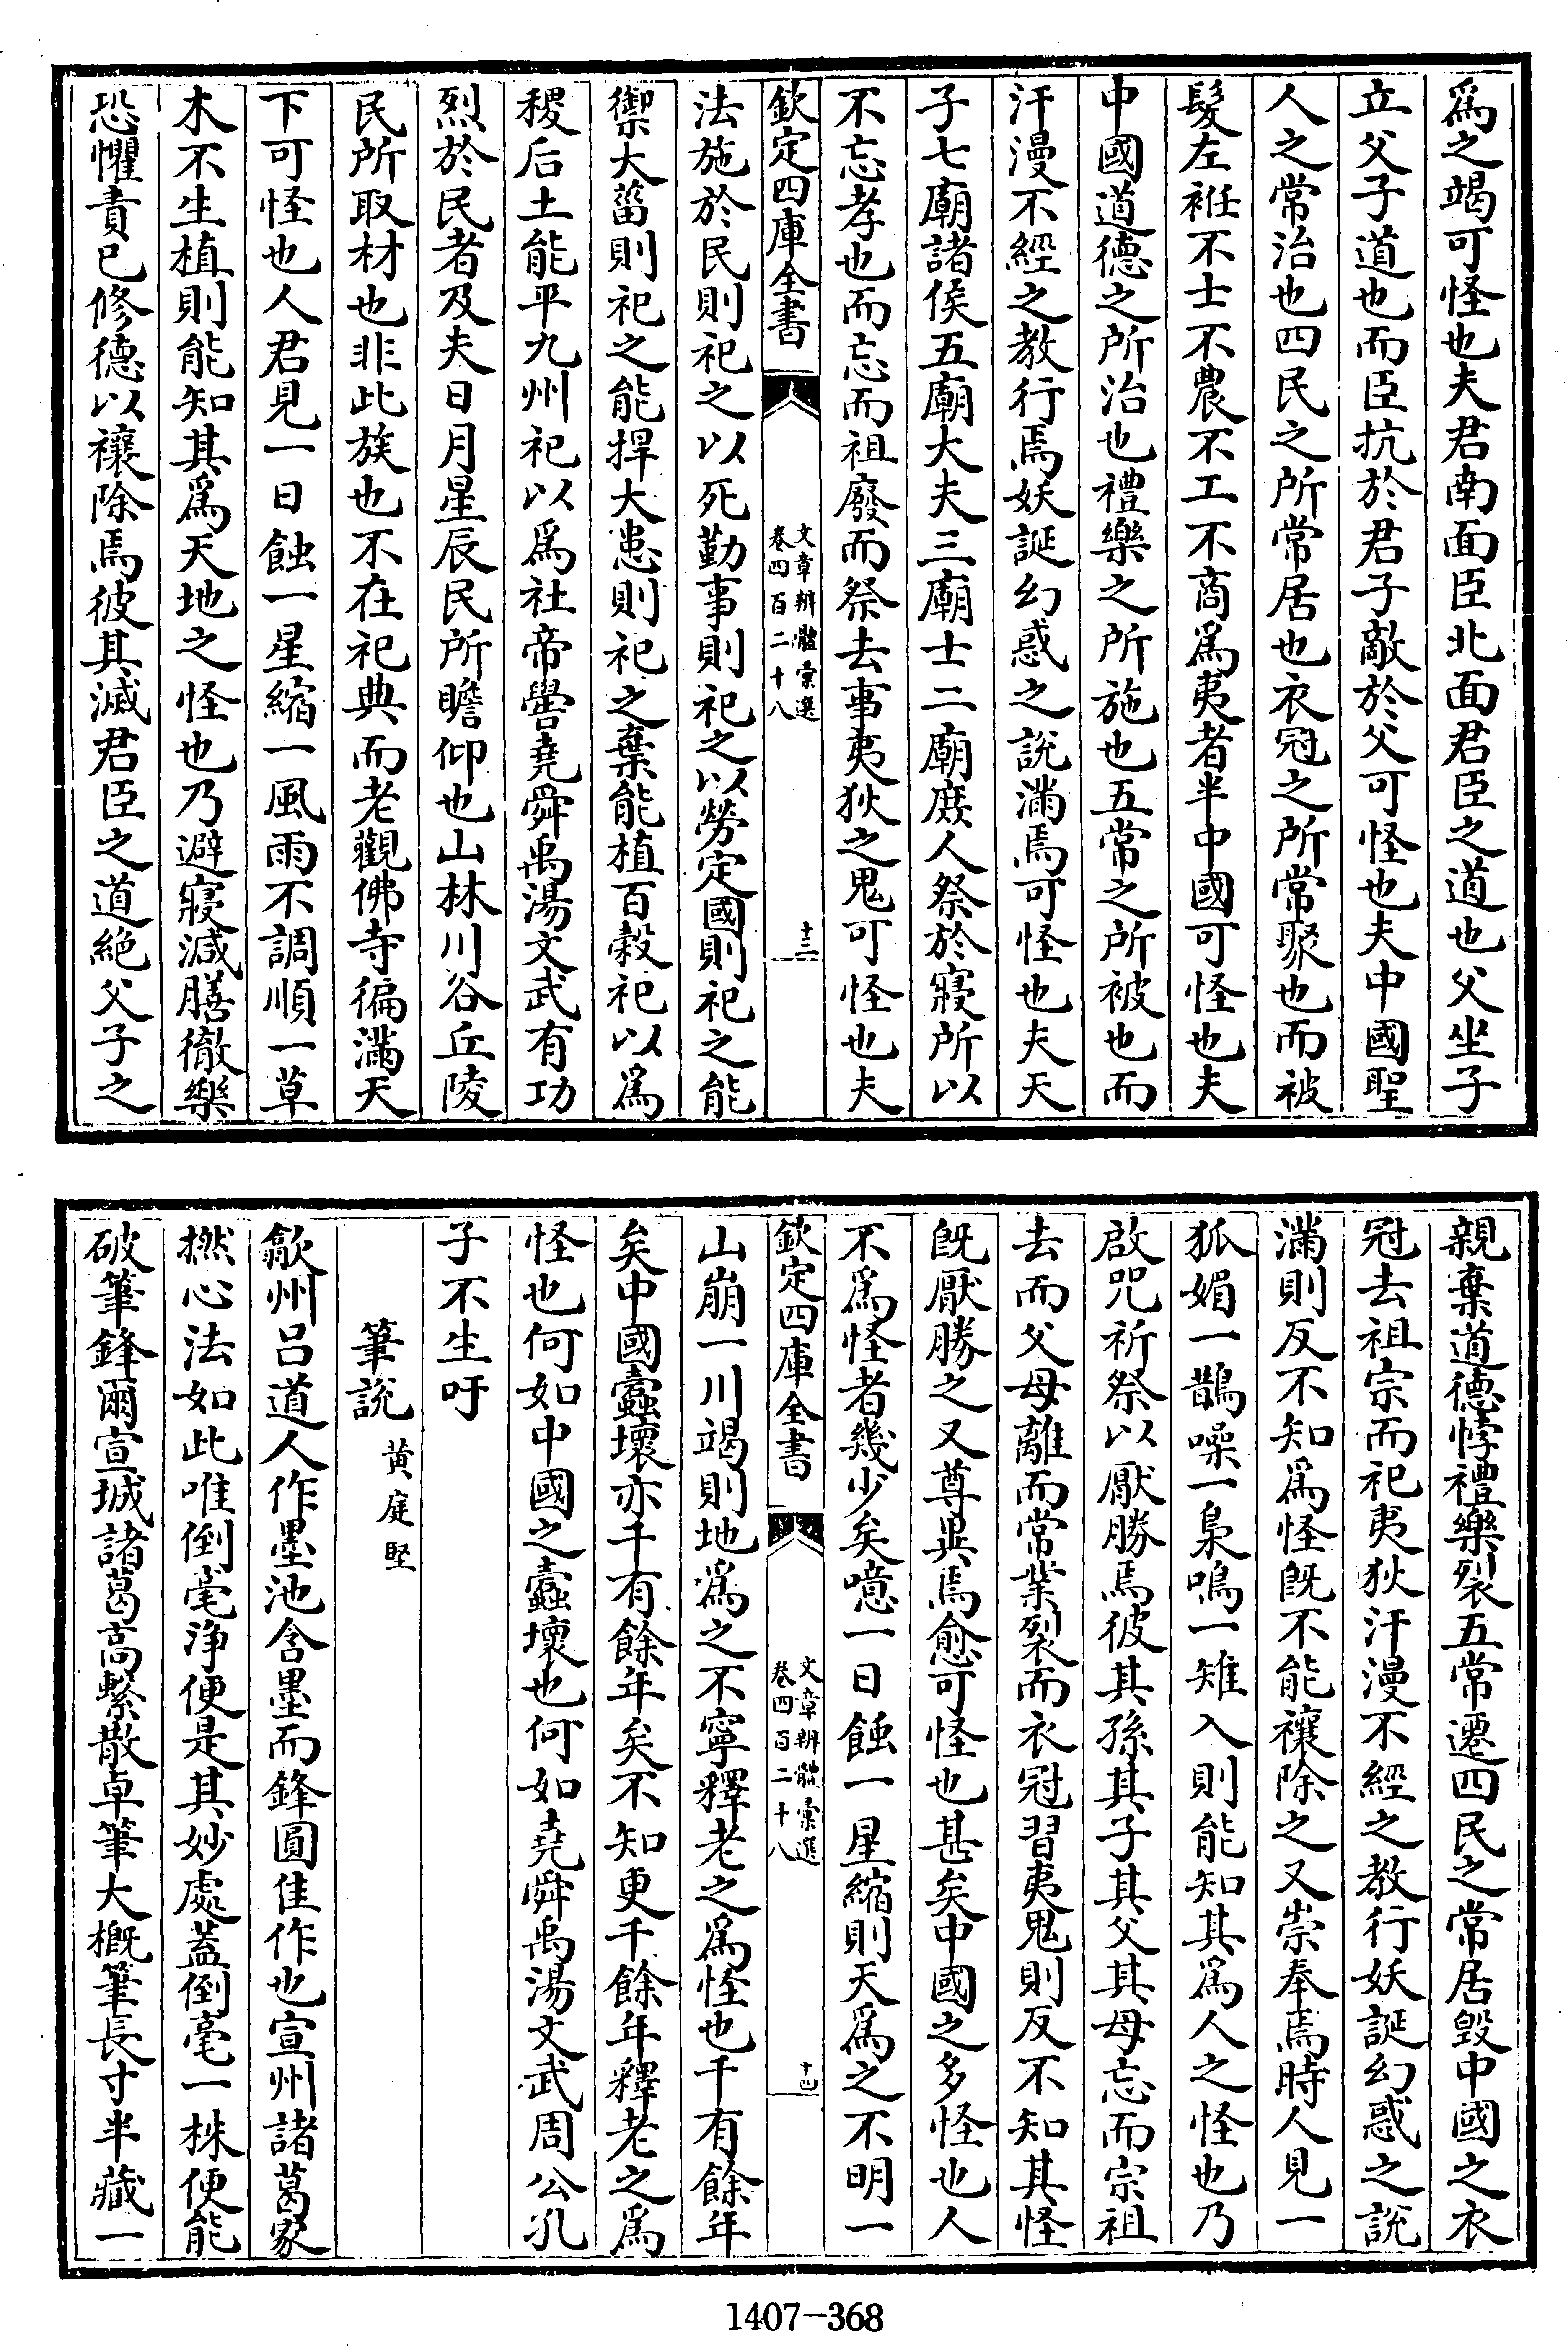 爲之竭可怪也夫君南面臣北面君臣之道也父坐子
立父子道也而臣抗於君子敵於父可怪也夫中國聖
人之常治也四民之所常居也衣冠之所常聚也而被
髮左袵不士不農不工不商爲夷者半中國可怪也夫
中國道德之所治也禮樂之所施也五常之所被也而
汗漫不經之教行焉妖誕幻惑之說滿焉可怪也夫天
子七廟諸侯五廟大夫三廟士二廟庻人祭於寢所以
不忘孝也而忘而祖廢而祭去事夷狄之鬼可怪也夫
欽定四庫全書
文章辨體彙選
卷四百二十八
十三
法施於民則祀之以死勤事則祀之以勞定國則祀之能
禦大菑則祀之能捍大患則祀之棄能植百穀祀以爲
稷后土能平九州祀以爲社帝嚳堯舜禹湯文武有功
烈於民者及夫日月星辰民所瞻仰也山林川谷丘陵
民所取材也非此族也不在祀典而老觀佛寺徧滿天
下可怪也人君見一日蝕一星縮一風雨不調順一草
木不生植則能知其爲天地之怪也乃避寢減膳徹樂
恐懼責已修德以禳除焉彼其滅君臣之道絕父子之
親棄道德悖禮樂裂五常遷四民之常居毀中國之衣
冠去祖宗而祀夷狄汗漫不經之教行妖誕幻惑之說
滿則反不知爲怪既不能禳除之又崇奉焉時人見一
狐媚一鵲噪一梟鳴一雉入則能知其爲人之怪也乃
啟咒祈祭以厭勝焉彼其孫其子其父其母忘而宗祖
去而父母離而常業裂而衣冠習夷鬼則反不知其怪
既厭勝之又尊異焉愈可怪也甚矣中國之多怪也人
不爲怪者幾少矣噫一日蝕一星縮則天爲之不明一
欽定四庫全書
文章辨體彙選
卷四百二十八
十四
山崩一川竭則地爲之不寧釋老之爲怪也千有餘年
矣中國蠹壞亦千有餘年矣不知更千餘年釋老之爲
怪也何如中國之蠹壞也何如堯舜禹湯文武周公孔
子不生吁
筆說 黄庭堅
歙州呂道人作墨池含墨而鋒圓佳作也宣州諸葛家
撚心法如此唯倒毫淨便是其妙處蓋倒毫一株便能
破筆鋒爾宣城諸葛高繫散卓筆大概筆長寸半藏一
1407-368